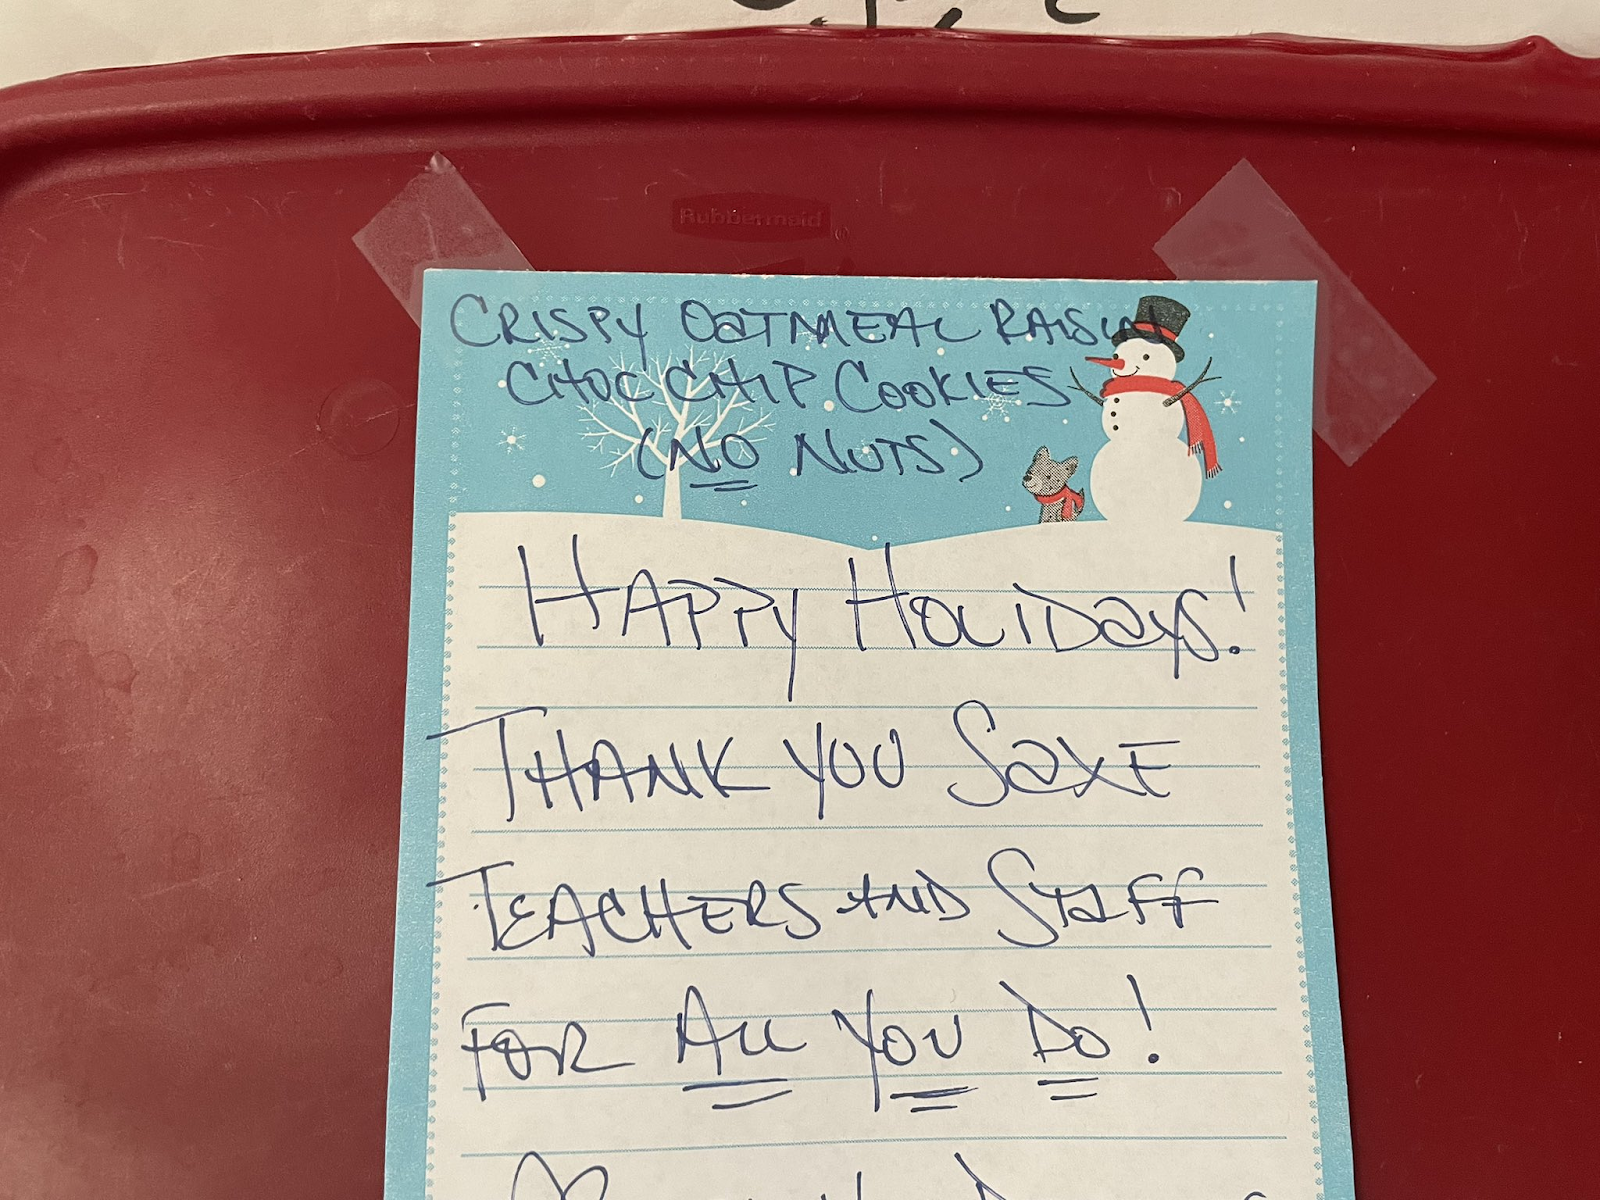 Rubbermaid
CRISPY OATMEAL RAISIN
CHOC CHIP COOKIES
(NO NUTS)
HAPPY HOLIDAYS!
THANK YOU SAXE
TEACHERS AND STAFF
FOR ALL YOU DO!